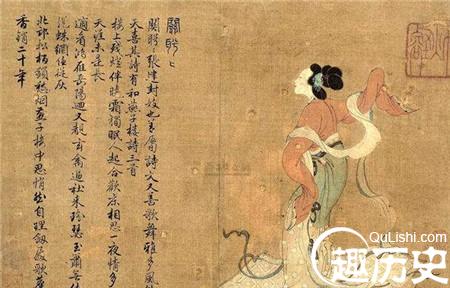 關盼々
關盼々張建封妓也善屬詩文又善歌舞雅多風
天喜其詩有和燕子樓詩三首
樓上殘燈伴曉霜獨眠人起合歡床相思一夜情多
天涯未是長
適看鴻雁岳陽迴又覩玄禽逼社來瑤瑟玉簫無
從蛛網任從灰
北邙松柏鎖愁烟燕子樓中思悄然自理劍履歌塵
香銷二十年
QuLishi.com
趣历史